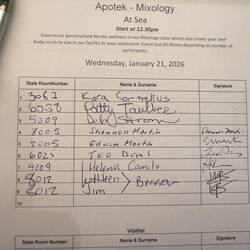 Apotek - Mixology
At Sea
Start at 12.30pm
Experience personalised Nordic wellness in our Mixology class where you create your own
body scrub to use in our facility or your stateroom. Event last 50-60min depending on number of
participants.
Wednesday, January 21, 2026
State RoomNumber Name & Surname Signature
1 3061 Kara Cornelius
2 6038 Patty Taulbee
3 5009 Strom
4 3005 Shannon Martin
5 3005 Edwin Martin
6 6023
7 4009 Helena Camilo
8 8012 Kathleen > Brenner
9 8012 Jim
10
Waitlist
State Room Number Name & Surname Signature